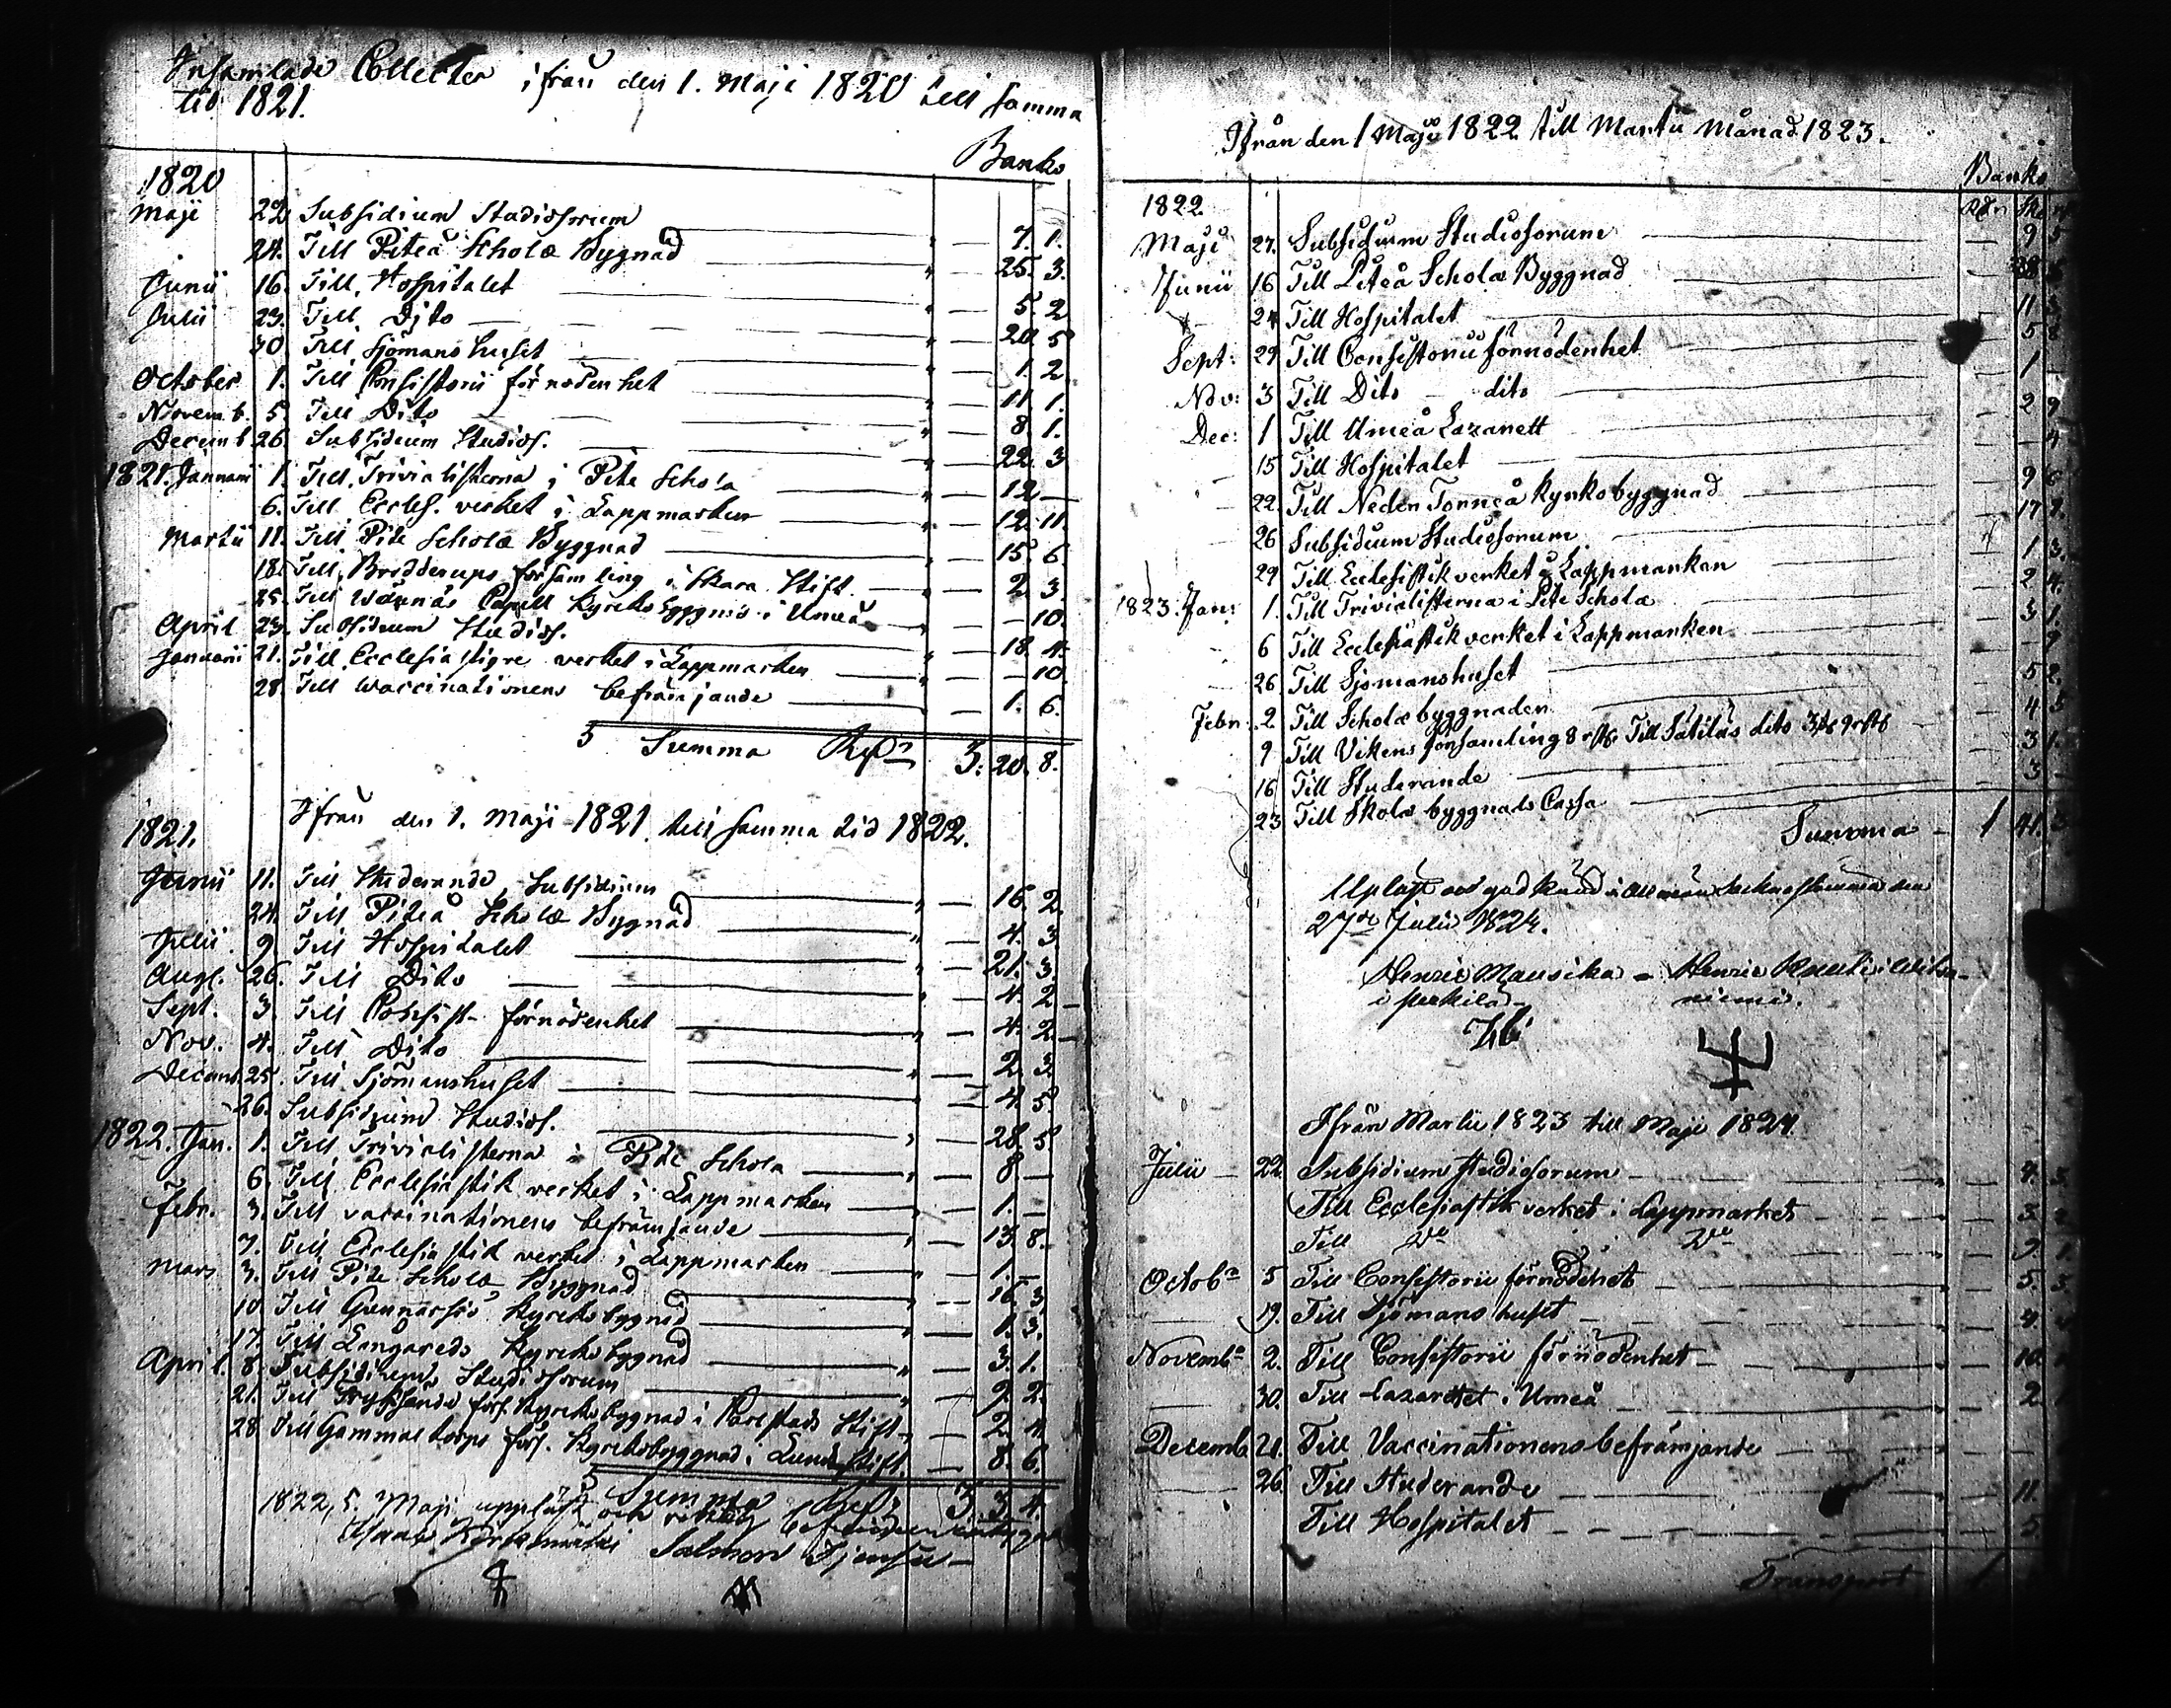 Insamlade Collecter ifrån den 1. Maji 1820 till samma
tid 1821.
Banko
1820
Maji 22. Subsidium Studiosorum " — 7. 1.
24. Till Piteå Scholæ Bygnad " — 25. 3.
Junii 16. Till Hospitalet " — 5. 2
Julii 23. Till Dito " — 20. 5
30. Till Sjömanshuset " — 1. 2
October 1. Till Consistorii förnödenhet " — 11. 1.
Novemb. 5. Till Dito " — 8. 1.
Decemb. 26. Subsidium Studios. " — 22. 3
1821. Januarii 1. Till Trivialisterna i Pite Schola " — 12 —
6. Till Eccles. verket i Lappmarken " — 12. 11.
Martii 11. Till Pite Scholæ Byggnad " — 15. 6.
18. Till Bredderups församling i Skara Stift. — 2. 3.
25. Till Wännäs Capell Kyrkobyggnad i Umeå " — — 10.
April 23. Subsidium Studios. " — 18. 4.
Januarii 21. Till Ecclesiastique verket i Lappmarken " — — 10.
28. Till Waccinationens befrämjande — 1. 6.
Summa Rdr 3: 20. 8.
Ifrån den 1. Maji 1821 till samma tid 1822.
1821.
Junii 11. Till Studerande, Subsidium " — 16. 2.
24. Till Piteå Scholæ Bygnad " — 4. 3
Julii 9 Till Hospitalet " — 21. 3.
Aug. 26. Till Dito " — 4. 2
Sept. 3. Till Consist. förnödenhet " — 4. 2
Nov. 4. Till Dito " — 2. 3
Decemb. 25. Till Sjömanshuset — 4. 5.
26. Subsidium Studios. " — 28. 5
1822. Jan. 1. Till Trivialisterna i Pite Schola " — 8 —
6. Till Ecclesiastik verket i Lappmarken " — 1. —
Febr. 3. Till vaccinationens befrämjande " — 13. 8.
7. Till Ecclesiastik verket i Lappmarken " — 1. —
Mars 3. Till Pite Scholæ Byggnad " — 16. 3.
10 Till Gunnarsjö Kyrkobygnad " — 1. 3.
17. Till Långareds Kyrkobygnad " — 3. 1.
April 8. Subsidium Studiosorum " — 9. 2.
21. Till förs. Kyrkobygnad i Carlstads Stift — 2. 4.
28 Till Gammalstorps förs. Kyrkobyggnad i Lunds Stift. — 8. 6.
Summa 3. 3. 4.
1822, 5. Maji uppläst och
Salmon
Ifrån den 1 Maji 1822 till Martii Månad 1823.
Banko
1822
Maji 27. Subsidium Studiosorum — 9 5
Junii 16 Till Piteå Scholæ Byggnad
24 Till Hospitalet — 11
Sept: 29 Till Consistorii förnödenhet — 5 8
Nov: 3 Till Dito dito — 1
Dec: 1 Till Umeå Lazarett — 2 9
15 Till Hospitalet — 4
22. Till Neder Torneå Kyrkobyggnad — 9 6
26 Subsidium Studiosorum — 17
29 Till Ecclesistik verket i Lappmarken — 1 3.
1823. Jan: 1. Till Trivialisterna i Pite Schola — 2 4.
6 Till Ecclesiastik verket i Lappmarken — 3 1.
26 Till Sjömanshuset — 9
Febr: 2 Till Scholæ byggnaden — 5 2
9 Till Vikens församling 8 rst. Till Sätilas dito — 4
16 Till Studerande — 3 1.
23 Till Skolæ byggnads Cassa — 3 —
Summa — 1 41.
Upläst och godkänd i allmän Sockenstämma den
27de Julii 1824.
Henric Mausika — Henric
niemi.
Ifrån Martii 1823 till Maji 1824.
Julii — 22. Subsidium Studiosorum
Till Ecclesiastik verket i Lappmarket — 3.
Till Do Do
Octobr 5 Till Consistorii förnödenhet — 5. 3.
19. Till Sjömanshuset — 4.
Novembr 2. Till Consistorii förnödenhet — 10.
30. Till Lazarettet i Umeå — 2
Decemb. 21. Till Vaccinationens befrämjande
26. Till Studerande — 11.
Till Hospitalet — 5
Transport 1